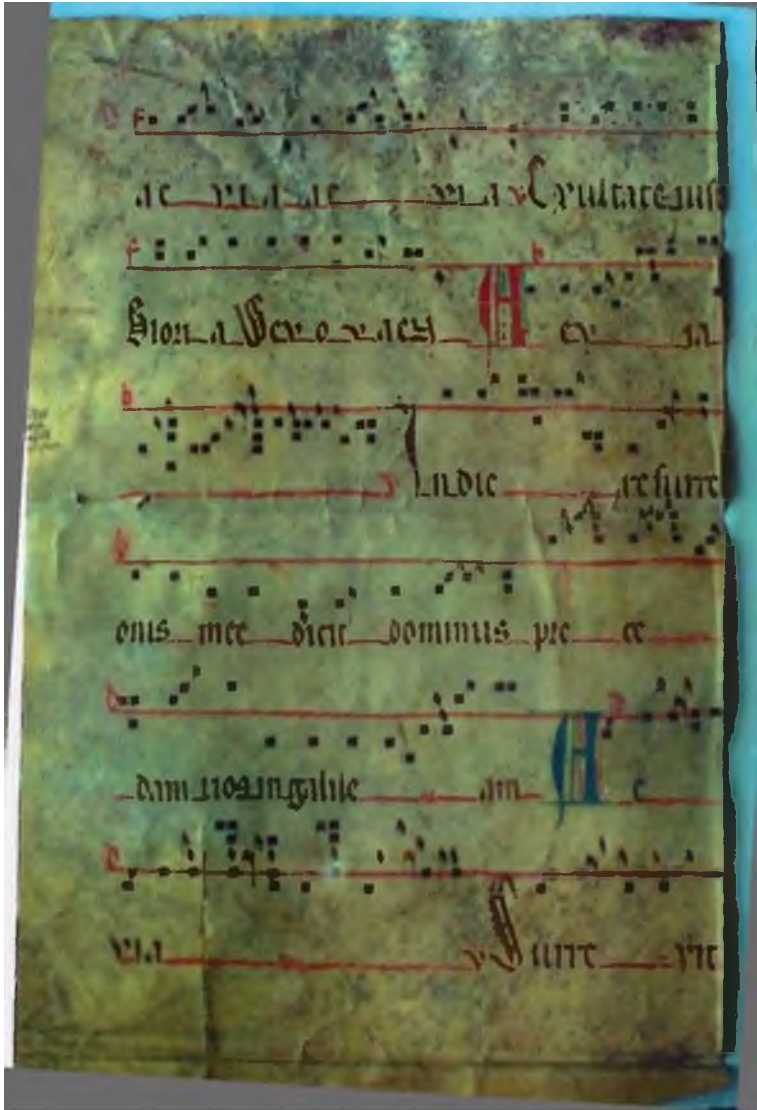 ae via ae via v Exultate iust
Gloria Seuovaey Aevia
v In die resurre
onis mee dicit dominus pre ce
dam uos in galile am Ae
via v Surre xit